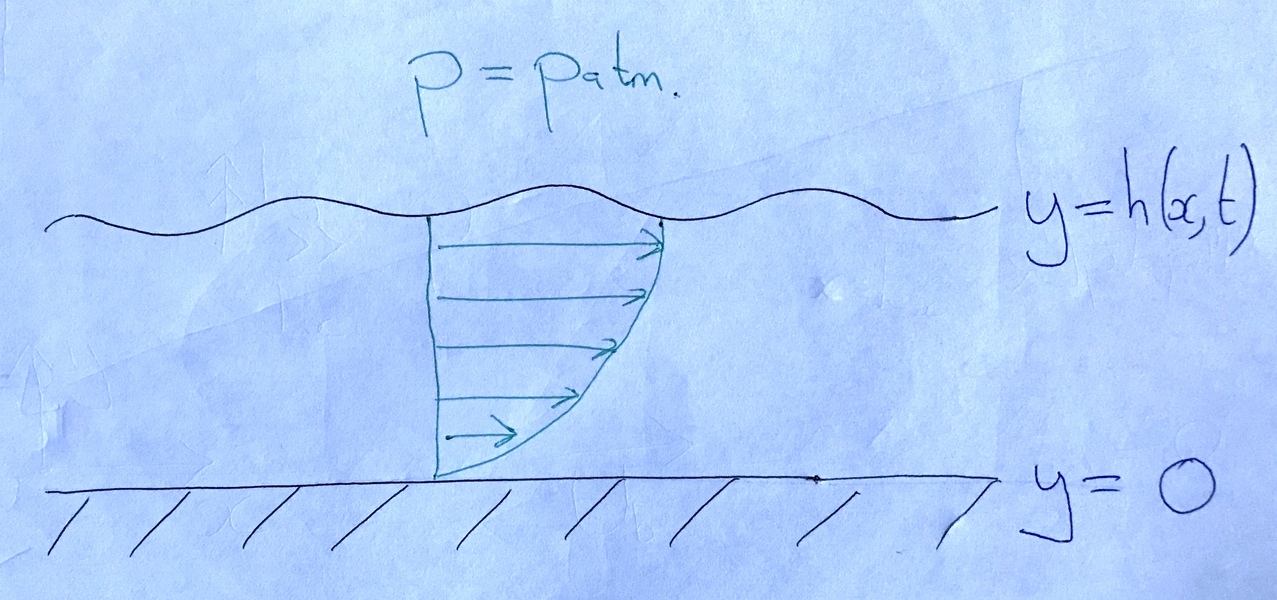 p = patm.
y = h(x,t)
y = 0